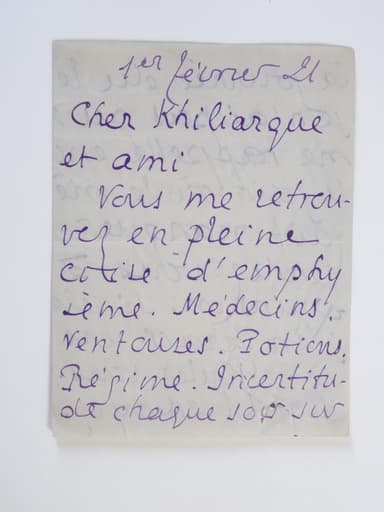 1er février 21
Cher Khiliarque
et ami
Vous me retrou-
vez en pleine
crise d'emphy
sème. Médecins.
Ventouses. Potions.
Régime. Incertitu-
de chaque soir sur